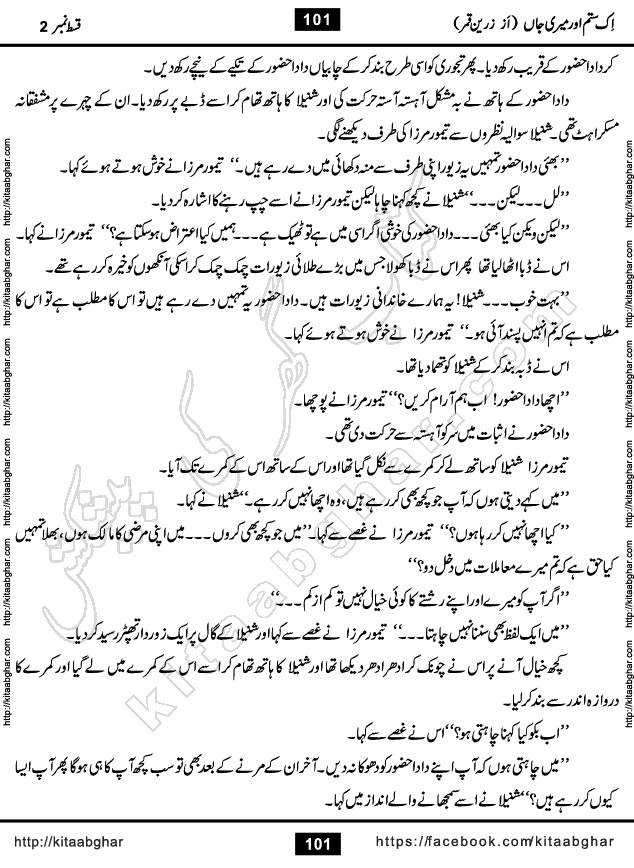 اِک ستم اور میری جاں (از زرین قمر)
101
قسط نمبر 2
کر دادا حضور کے قریب رکھ دیا۔ پھر تجوری کو اسی طرح بند کر کے چابیاں دادا حضور کے تکیے کے نیچے رکھ دیں۔
دادا حضور کے ہاتھ نے بہ مشکل آہستہ آستہ حرکت کی اور شنیلا کا ہاتھ تھام کر اسے ڈبے پر رکھ دیا۔ ان کے چہرے پر مشفقانہ
مسکراہٹ تھی۔ شنیلا سوالیہ نظروں سے تیمور مرزا کی طرف دیکھنے لگی۔
’’بھئی دادا حضور تمہیں یہ زیور اپنی طرف سے منہ دکھائی میں دے رہے ہیں۔‘‘ تیمور مرزا نے خوش ہوتے ہوئے کہا۔
’’لل۔۔۔لیکن۔۔۔‘‘ شنیلا نے کچھ کہنا چاہا لیکن تیمور مرزا نے اسے چپ رہنے کا اشارہ کر دیا۔
’’لیکن ویکن کیا بھئی۔۔۔دادا حضور کی خوشی اگر اسی میں ہے تو ٹھیک ہے۔۔۔ہمیں کیا اعتراض ہو سکتا ہے؟‘‘ تیمور مرزا نے کہا۔
اس نے ڈبا اٹھا لیا تھا پھر اس نے ڈبا کھولا جس میں بڑے طلائی زیورات چمک چمک کر اسکی آنکھوں کو خیرہ کر رہے تھے۔
’’بہت خوب۔۔۔شنیلا! یہ ہمارے خاندانی زیورات ہیں۔ دادا حضور یہ تمہیں دے رہے ہیں تو اس کا مطلب ہے تو اس کا
مطلب ہے کہ تم انہیں پسند آئی ہو۔‘‘ تیمور مرزا نے خوش ہوتے ہوئے کہا۔
اس نے ڈبہ بند کر کے شنیلا کو تھما دیا تھا۔
’’اچھا دادا حضور! اب ہم آرام کریں؟‘‘ تیمور مرزا نے پوچھا۔
دادا حضور نے اثبات میں سر کو آہستہ سے حرکت دی تھی۔
تیمور مرزا شنیلا کو ساتھ لے کر کمرے سے نکل گیا تھا اور اس کے ساتھ اس کے کمرے تک آیا۔
’’میں کہے دیتی ہوں کہ آپ جو کچھ بھی کر رہے ہیں، وہ اچھا نہیں کر رہے۔‘‘ شنیلا نے کہا۔
’’کیا اچھا نہیں کر رہا ہوں؟‘‘ تیمور مرزا نے غصے سے کہا۔ ’’میں جو کچھ بھی کروں۔۔۔میں اپنی مرضی کا مالک ہوں، بھلا تمہیں
کیا حق ہے کہ تم میرے معاملات میں دخل دو؟‘‘
’’اگر آپ کو میرے اور اپنے رشتے کا کوئی خیال نہیں تو کم از کم۔۔۔‘‘
’’میں ایک لفظ بھی سننا نہیں چاہتا۔۔۔‘‘ تیمور مرزا نے غصے سے کہا اور شنیلا کے گال پر ایک زور دار تھپڑ رسید کر دیا۔
کچھ خیال آنے پر اس نے چونک کر ادھر ادھر دیکھا تھا اور شنیلا کا ہاتھ تھام کر اسے اس کے کمرے میں لے گیا اور کمرے کا
دروازہ اندر سے بند کر لیا۔
’’اب بکو کیا کہنا چاہتی ہو؟‘‘ اس نے غصے سے کہا۔
’’میں چاہتی ہوں کہ آپ اپنے دادا حضور کو دھوکا نہ دیں۔ آخر ان کے مرنے کے بعد بھی تو سب کچھ آپ کا ہی ہو گا پھر آپ ایسا
کیوں کر رہے ہیں؟‘‘ شنیلا نے اسے سمجھانے والے انداز میں کہا۔
http://kitaabghar.com http://kitaabghar.com http://kitaabghar.com http://kitaabghar.com http://kitaabghar.com http://kitaabghar.com
http://kitaabghar.com http://kitaabghar.com http://kitaabghar.com http://kitaabghar.com http://kitaabghar.com http://kitaabghar.com
کتاب گھر کی پیشکش
kitaabghar.com
http://kitaabghar
101
https://facebook.com/kitaabghar